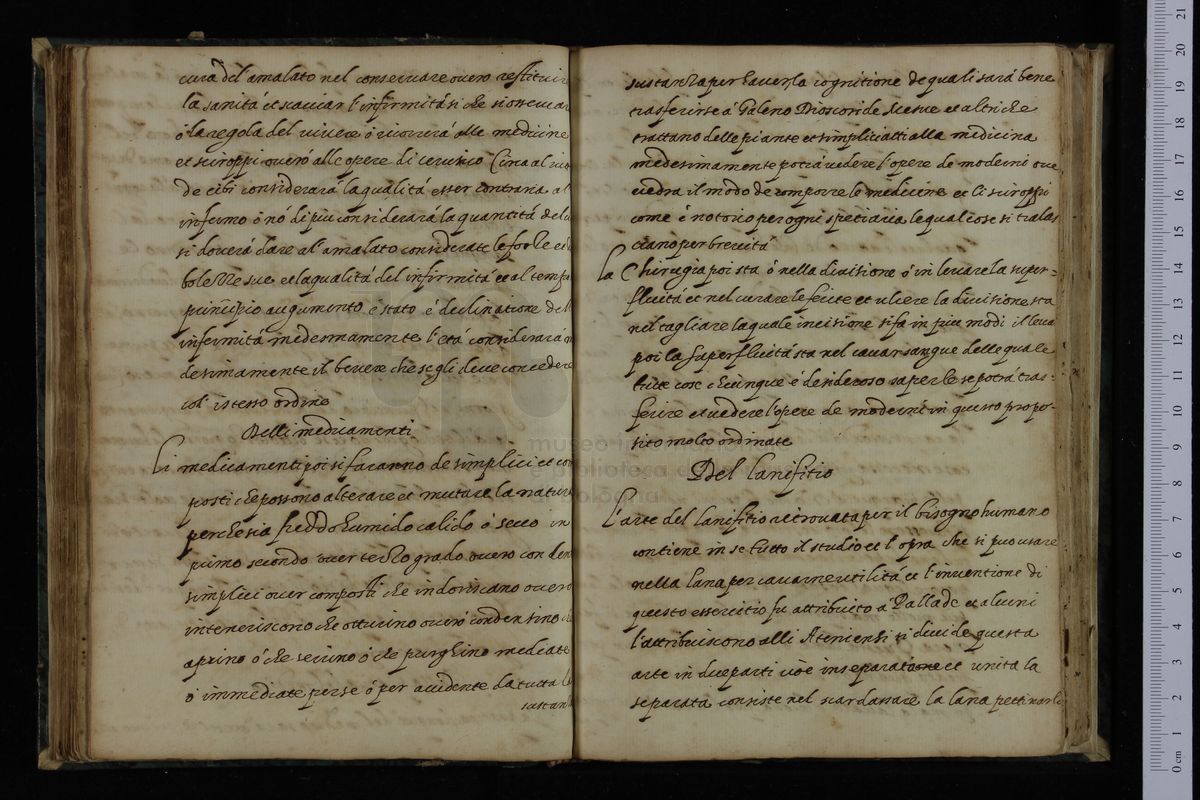 cura del amalato nel conservare overo restituir
la sanità et scacciar l'infirmità si che si osservar
ò la regola del vivere ò ricorrera alle medicine
et sciroppi overò all opere di cerusico Circa al
de cibi considerarà la qualità esser contraria al
infermo ò nò di piu considerarà la quantità del
si doverà dare al amalato considerate le forze
bolezze sue et la qualità del infirmità et al tempo
principio augumento è stato è declinatione del
infermità medesmamente l'età considerarà
desimamente il bevere che se gli deve concedere
col istesso ordine
Delli medicamenti
Li medicamenti poi si faranno de simplici et com
posti che possono alterare et mutare la natura
perche sia freddo humido calido ò secco in
primo secondo over terzo grado overo con
simplici over composti che indoriscano overo
inteneriscono che otturino overò condensino
aprino ò che secchino ò che purghino mediate
ò immediate per se ò per accidente da tutta la
sustan
sustanza per haver la cognitione de quali sarà bene
trasferirse à Galeno Dioscoride Mesue et altri che
trattano delle piante et simplici atti alla medicina
medesimamente potrà vedere l'opere de moderni ove
vedra il modo de comporre le medicine et li sciroppi
come è notorio per ogni spetiaria le qual cose si tralas
ciano per brevità
La Chirugia poi sta ò nella divisione ò in levare la super=
fluità et nel curare le ferite et ulcere la divisione sta
nel tagliare la quale incisione si fa in piu modi il levar
poi la superfluità sta nel cavar sangue delle quale
tutte cose chiunque è desideroso saperle se potrà tras=
ferire et vedere l'opere de moderni in questo propo=
sito molto ordinate
Del lanifitio
L'arte del lanifitio ritrovata per il bisogno humano
contiene in se tutto il studio et l'opra che si puo usare
nella lana per cavarne utilità et l'inventione di
questo essercitio fu attribuito à Pallade et alcuni
l'attribuiscono alli Ateniensi si divide questa
arte in due parti cioè in separata et unita la
separata consiste nel scardassare la lana pettinarla